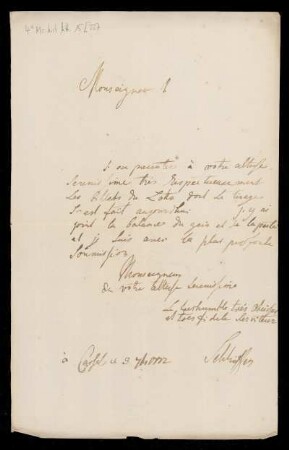 Monseigneur !
à votre altesse
Serenissime tres respectueusement
Les de Lotto dont le tirage
s'est fait aujourdhui j'y ai
joint la balance du gain et de la perte
et je suis avec la plus profonde
Soumission
Monseigneur
de votre Altesse Serenissime
Le très humble très obeissant
et très fidele Serviteur
à Cassel ce 3